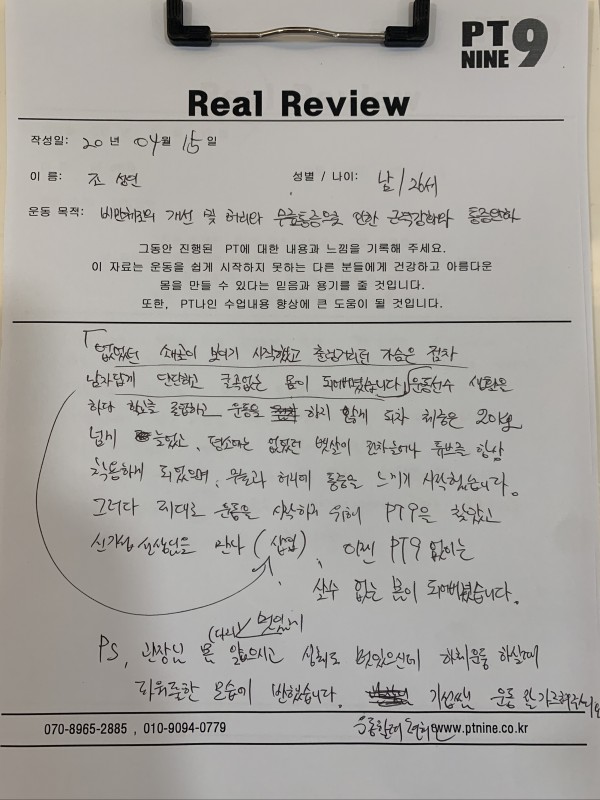 PT
NINE 9
Real Review
작성일: 20 년 04 월 15 일
이 름: 조 성연 성별 / 나이: 남 / 26세
운동 목적: 비만체형의 개선 및 허리와 무릎통증을 인한 근력강화와 통증완화
그동안 진행된 PT에 대한 내용과 느낌을 기록해 주세요.
이 자료는 운동을 쉽게 시작하지 못하는 다른 분들에게 건강하고 아름다운
몸을 만들 수 있다는 믿음과 용기를 줄 것입니다.
또한, PT나인 수업내용 향상에 큰 도움이 될 것입니다.
「없었던 쇄골이 보이기 시작했고 출렁거리던 가슴은 점차
남자답게 단단하고 굴곡있는 몸이 되어버렸습니다」 운동선수 생활은
하다 학교를 졸업하고 운동을 하지 않게 되자 체중은 20키로
넘게 늘었고, 평소에는 없었던 뱃살이 튜브를 항상
착용하게 되었으며, 무릎과 허리에 통증을 느끼기 시작했습니다.
그러다 제대로 운동을 시작하기 위해 PT9을 찾았고
신기섭 선생님을 만나 (삽입), 이젠 PT9 없이는
살수 없는 몸이 되어버렸습니다.
PS, 관장님 몸 (다시) 멋있게
상체도 멋있으신데 하체운동 하실때
파워풀한 모습에 반했습니다. 기섭쌤 운동 잘 가르쳐주셔요
070-8965-2885 , 010-9094-0779 www.ptnine.co.kr